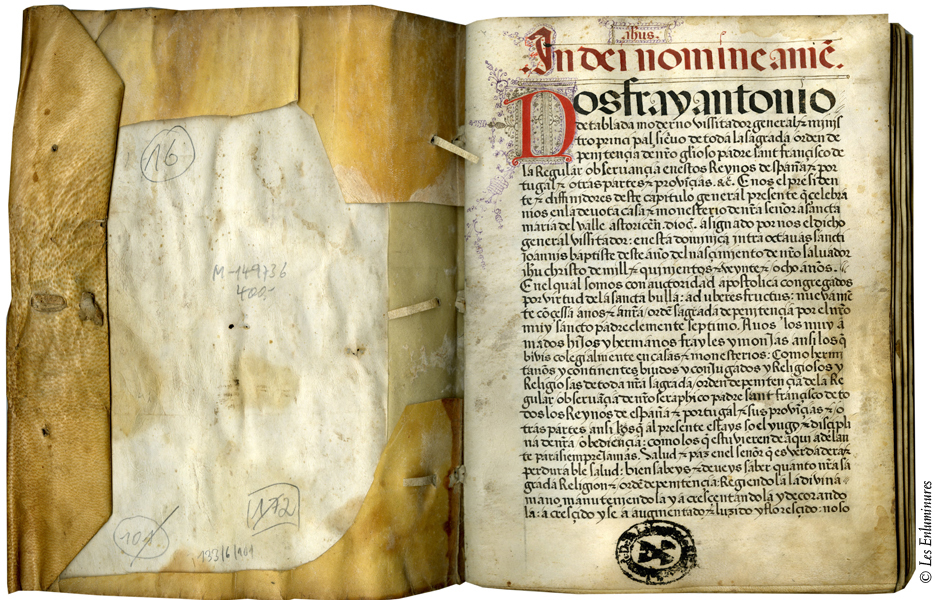 16
M-149736
400,-
172
101
133/6/1961
ihus.
In dei nomine amē.
Nos fray antonio
de tablada moderno vissitador general & minis
tro principal, sieruo de toda la sagrada orden de
penitençia de nr̃o gl̃ioso padre sant françisco de
la Regular obseruançia en estos Reynos despaña & por
tugal & otras partes & prouiçias. &c̃. E nos el presiden
te & diffinidores deste capitulo general presente q̃ celebra
mos en la deuota casa & monesterio de nr̃a señora sancta
maria del valle astoriceñ. dioc̃. asignado por nos el dicho
general vissitador: en esta dominica intra octauas sancti
joannis baptiste deste año del nasçimento de nr̃o saluador
ihu christo de mill & quinientos & veynte & ocho años.
E nel qual somos con auctoridad apostolica congregados
por virtud de la sancta bulla: ad uberes fructus: nueuamẽ
te cõçessa a nos & a nr̃a ordẽ sagrada de penitençia por el nr̃o
muy sancto padre clemente septimo. A uos los muy a
mados hijos y hermanos frayles y monjas ansi los q̃
biuis colegialmente en casas & monesterios: Como hermi
taños y continentes biudos y conjugados y Religiosos y
Religiosas de toda nr̃a sagrada orden de penitençia de la Re
gular obseruãçia de nr̃o seraphico padre sant frãçisco de to
dos los Reynos de españa & portugal & sus prouiçias & o
tras partes ansi los q̃ al presente estays so el yugo & disçipli
na de nr̃a obediençia: como los q̃ estuuieren de aqui adelan
te para siempre jamas. Salud & paz en el señor q̃ es verdadera &
perdurable salud: bien sabeys & deueys saber quanto nr̃a sa
grada Religion & ordẽ de penitençia: Regiendo la la diuina
mano, manuteniendo la y acresçentando la y decorando
la: a cresçido y se a augmentado & luzido y floresçido: no so
© Les Enluminures